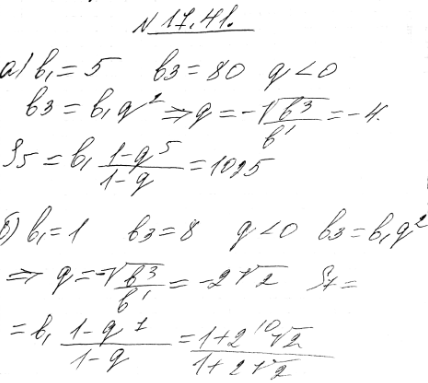 N 17.41.
а) b₁ = 5 b₃ = 80 q < 0
b₃ = b₁q² ⇒ q = -√(b₃/b₁) = -4.
S₅ = b₁ (1-q⁵)/(1-q) = 1025
б) b₁ = 1 b₃ = 8 q < 0 b₃ = b₁q²
⇒ q = -√(b₃/b₁) = -2√2 S₇ =
= b₁ (1-q⁷)/(1-q) = (1+2¹⁰√2)/(1+2√2)